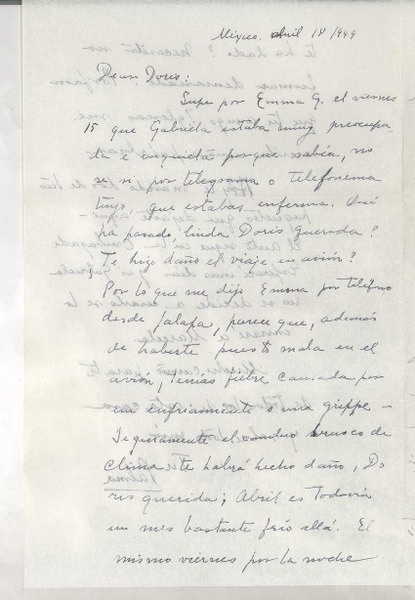 México, abril 18/949
Dear Doris:
Supe por Emma G. el viernes
15 que Gabriela estaba muy preocupa-
da e inquieta porque sabía, no
se si por telegrama o telefonema
tuyo, que estabas enferma. Qué
ha pasado, linda Doris querida?
Te hizo daño el viaje en avión?
Por lo que me dijo Emma por teléfono
desde Jalapa, parece que, además
de haberte puesto mala en el
avión, tenías fiebre causada por
un enfriamiento o una grippe -
Seguramente el cambio brusco de
clima te habrá hecho daño, Do
ris querida; Abril es todavía
un mes bastante frío allá. El
mismo viernes por la noche